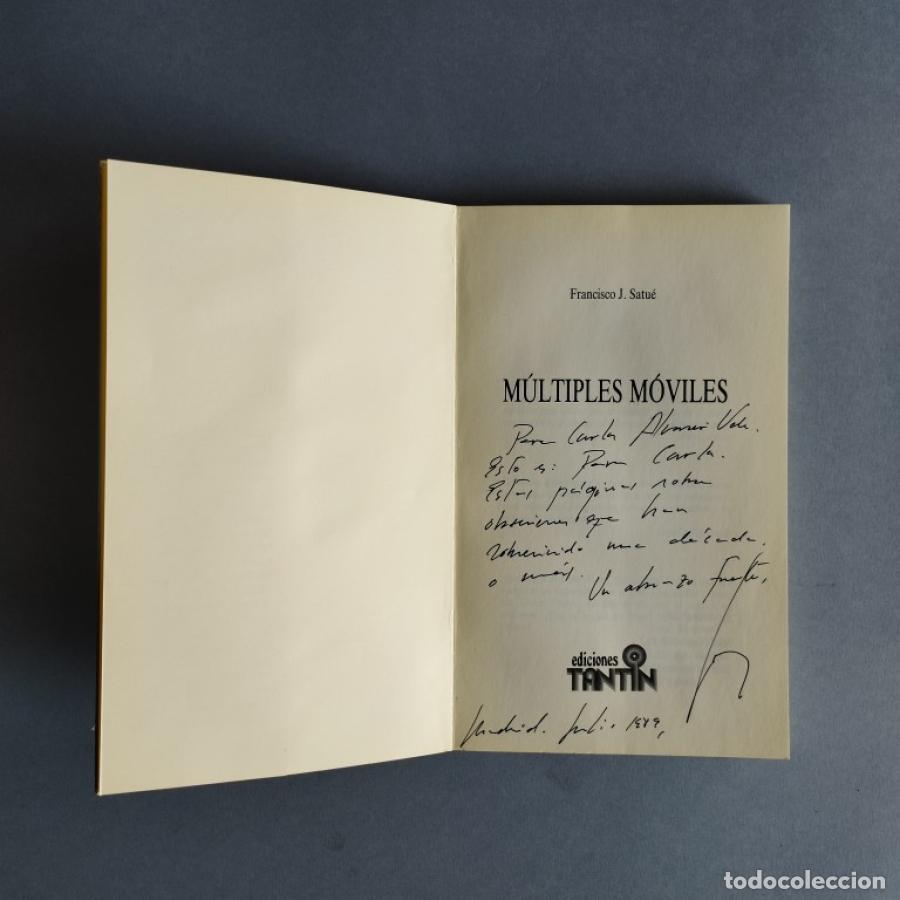 Francisco J. Satué
MÚLTIPLES MÓVILES
Para Carla Alvarez
Esto es: Para Carla.
Estas páginas sobre
obsesiones que han
sobrevivido una década
o más. Un abrazo fuerte,
ediciones
TANTÍN
Madrid. Julio
todocoleccion